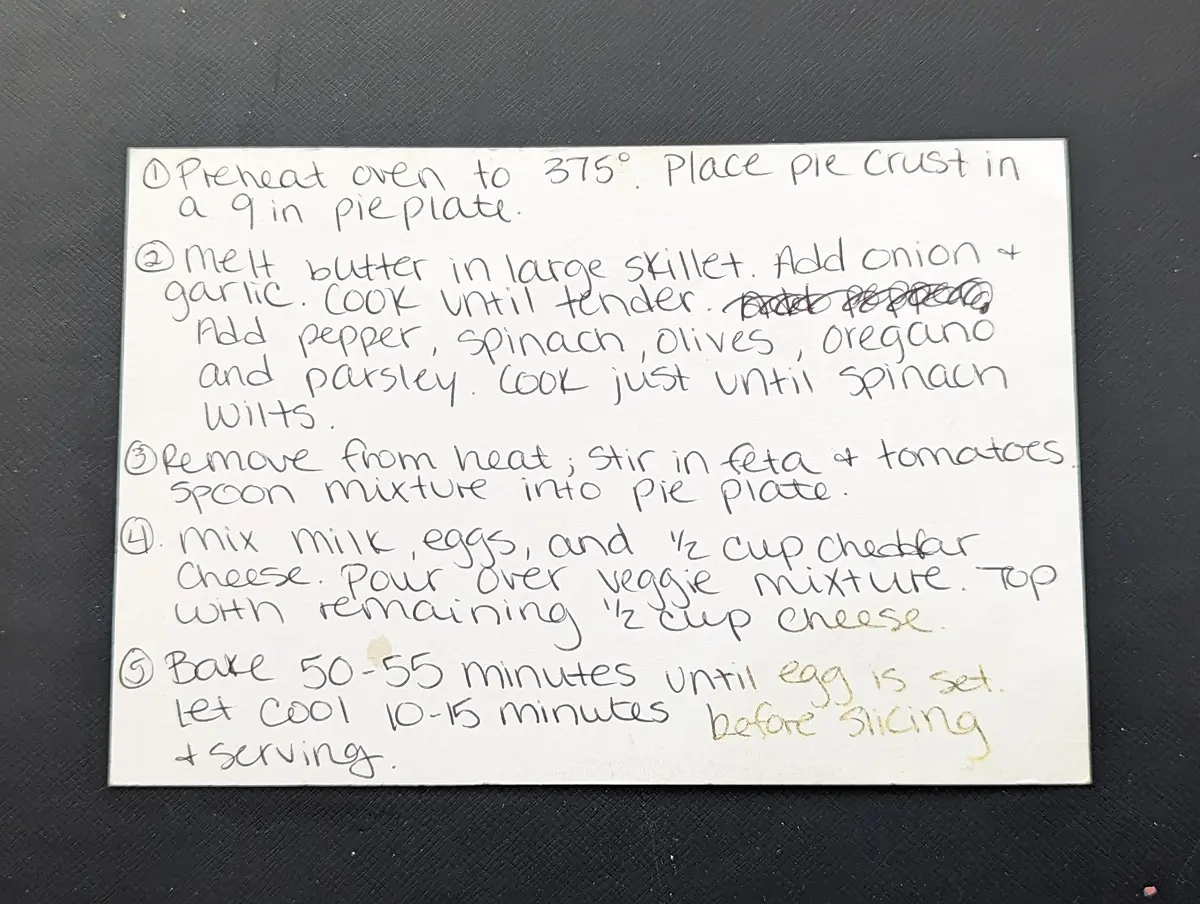 ① Preheat oven to 375°. Place pie crust in
a 9 in pie plate.
② Melt butter in large skillet. Add onion &
garlic. Cook until tender.
Add pepper, spinach, olives, oregano
and parsley. Cook just until spinach
wilts.
③ Remove from heat; stir in feta & tomatoes.
Spoon mixture into pie plate.
④. Mix milk, eggs, and 1/2 cup cheddar
cheese. Pour over veggie mixture. Top
with remaining 1/2 cup cheese.
⑤ Bake 50-55 minutes until egg is set.
Let cool 10-15 minutes before slicing
& serving.